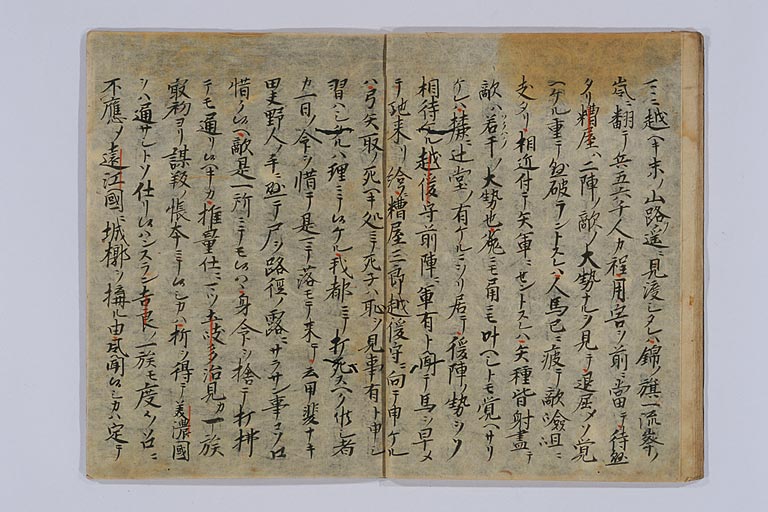 今ニ越ヘキ末ノ山路遥ニ見渡シタレハ錦ノ旗一流峯ノ
嵐ニ翻テ兵五六千人カ程用害ヲ前ニ當テ待懸
タリ糟屋ハ二陣ノ敵ノ大勢ナルヲ見テ退屈メソ覚
ヘケル重テ懸破ラントスレハ人馬已ニ疲テ敵嶮岨ニ
支タリ相近付テ矢軍ヲセントスレハ矢種皆射盡テ
敵ハ若干ノ大勢也兎ニモ角ニモ叶ヘシトモ覚ヘサリ
ケレハ麓ニ辻堂ノ有ケルニヲリ居テ後陣ノ勢ヲソ
相待ケル越後守前陣ニ軍有ト聞テ馬ヲ早メ
テ馳来リ給糟屋三郎越後守ニ向テ申ケル
ハ弓矢取ノ死ヘキ処ニテ死子ハ恥ヲ見事有ト申シ
習ハシタルハ理ニテ候ケル我都ニテ打死スヘク候シ者
カ一日ノ命ヲ惜テ是ニテ落モテ来テ云甲斐ナキ
田夫野人ノ手ニ懸テ尸ヲ路徑ノ露ニサラサン事コソ口
惜ク候ヘ敵是一所ニテモ候ハヽ身命ヲ捨テ打拂
テモ通リ候ヘキカ推量仕ニソ土岐多治見カ一族
最初ヨリ謀叛ノ張本ニテ候シカハ折ヲ得テ美濃國
ヲハ通サシトソ仕リ候ハンスラン吉良ノ一族モ度々ノ召ニ
不應ノ遠江國ニ城槨ヲ搆ル由風聞候シカハ定テ